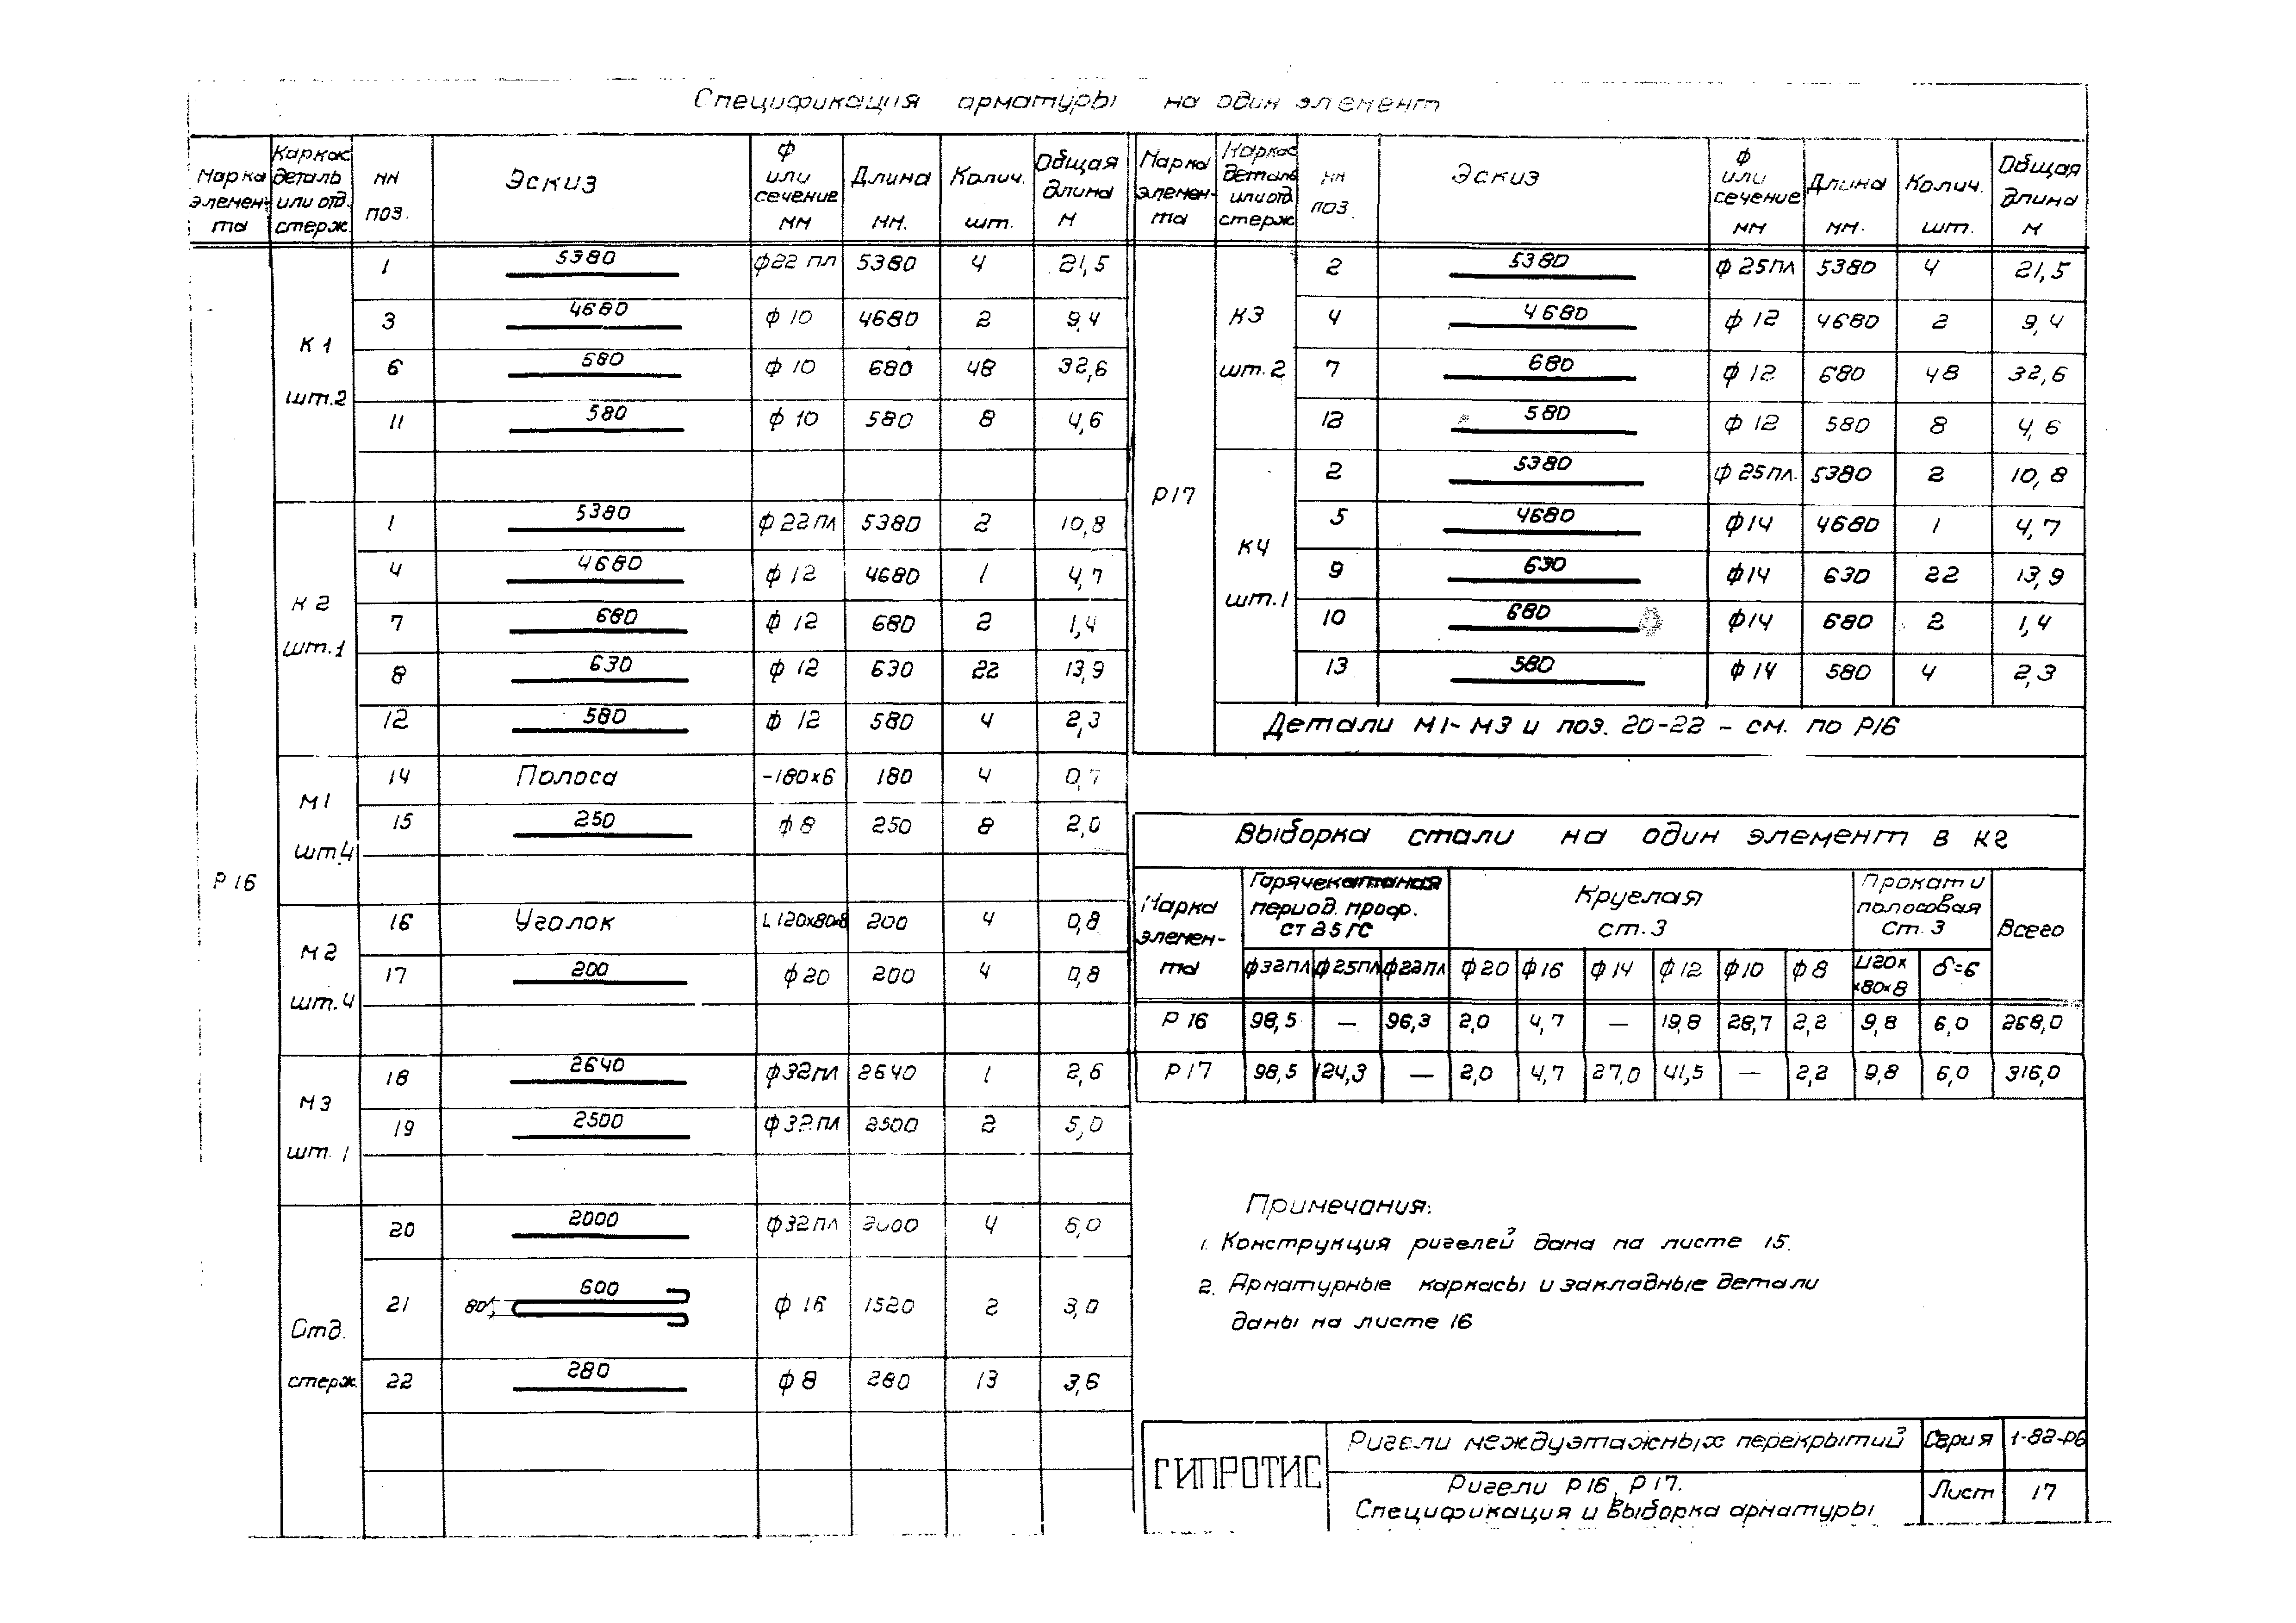 Спецификация арматуры на один элемент
Марка элемен-та | Каркас деталь или отд. стерж. | NN поз. | Эскиз | ф или сечение мм | Длина мм. | Колич. шт. | Общая длина м
Р16
К1 шт.2
1 | 5380 | ф22 пл | 5380 | 4 | 21,5
3 | 4680 | ф 10 | 4680 | 2 | 9,4
6 | 580 | ф 10 | 680 | 48 | 32,6
11 | 580 | ф 10 | 580 | 8 | 4,6
К2 шт.1
1 | 5380 | ф 22 пл | 5380 | 2 | 10,8
4 | 4680 | ф 12 | 4680 | 1 | 4,7
7 | 680 | ф 12 | 680 | 2 | 1,4
8 | 630 | ф 12 | 630 | 22 | 13,9
12 | 580 | ф 12 | 580 | 4 | 2,3
М1 шт.4
14 | Полоса | -180х6 | 180 | 4 | 0,7
15 | 250 | ф 8 | 250 | 8 | 2,0
М2 шт.4
16 | Уголок | L 120х80х8 | 200 | 4 | 0,8
17 | 200 | ф20 | 200 | 4 | 0,8
М3 шт. 1
18 | 2640 | ф32пл | 2640 | 1 | 2,6
19 | 2500 | ф32пл | 2500 | 2 | 5,0
Отд. стерж.
20 | 2000 | ф32пл | 2000 | 4 | 6,0
21 | 80 600 | ф 16 | 1520 | 2 | 3,0
22 | 280 | ф 8 | 280 | 13 | 3,6
Марка элемен-та | Каркас деталь или отд стерж | NN поз. | Эскиз | ф или сечение мм | Длина мм. | Колич. шт. | Общая длина м
Р17
К3 шт.2
2 | 5380 | ф 25пл | 5380 | 4 | 21,5
4 | 4680 | ф 12 | 4680 | 2 | 9,4
7 | 680 | ф 12 | 680 | 48 | 32,6
12 | 580 | ф 12 | 580 | 8 | 4,6
К4 шт.1
2 | 5380 | ф 25пл. | 5380 | 2 | 10,8
5 | 4680 | ф14 | 4680 | 1 | 4,7
9 | 630 | ф14 | 630 | 22 | 13,9
10 | 680 | ф14 | 680 | 2 | 1,4
13 | 580 | ф 14 | 580 | 4 | 2,3
Детали М1-М3 и поз. 20-22 - см. по Р16
Выборка стали на один элемент в кг
Марка элемен-та | Горячекатаная период. проф. ст 25 ГС | Круглая ст. 3 | Прокат и полосовая Ст. 3 | Всего
ф32пл | ф25пл | ф22пл | ф20 | ф16 | ф 14 | ф 12 | ф10 | ф 8 | L120х х80х8 | δ=6
Р 16 | 98,5 | — | 96,3 | 2,0 | 4,7 | — | 19,8 | 28,7 | 2,2 | 9,8 | 6,0 | 268,0
Р 17 | 98,5 | 124,3 | — | 2,0 | 4,7 | 27,0 | 41,5 | — | 2,2 | 9,8 | 6,0 | 316,0
Примечания:
1. Конструкция ригелей дана на листе 15.
2. Арматурные каркасы и закладные детали
даны на листе 16
ГИПРОТИС
Ригели междуэтажных перекрытий
Серия | 1-82-Р6
Ригели Р16, Р17.
Спецификация и выборка арматуры
Лист | 17